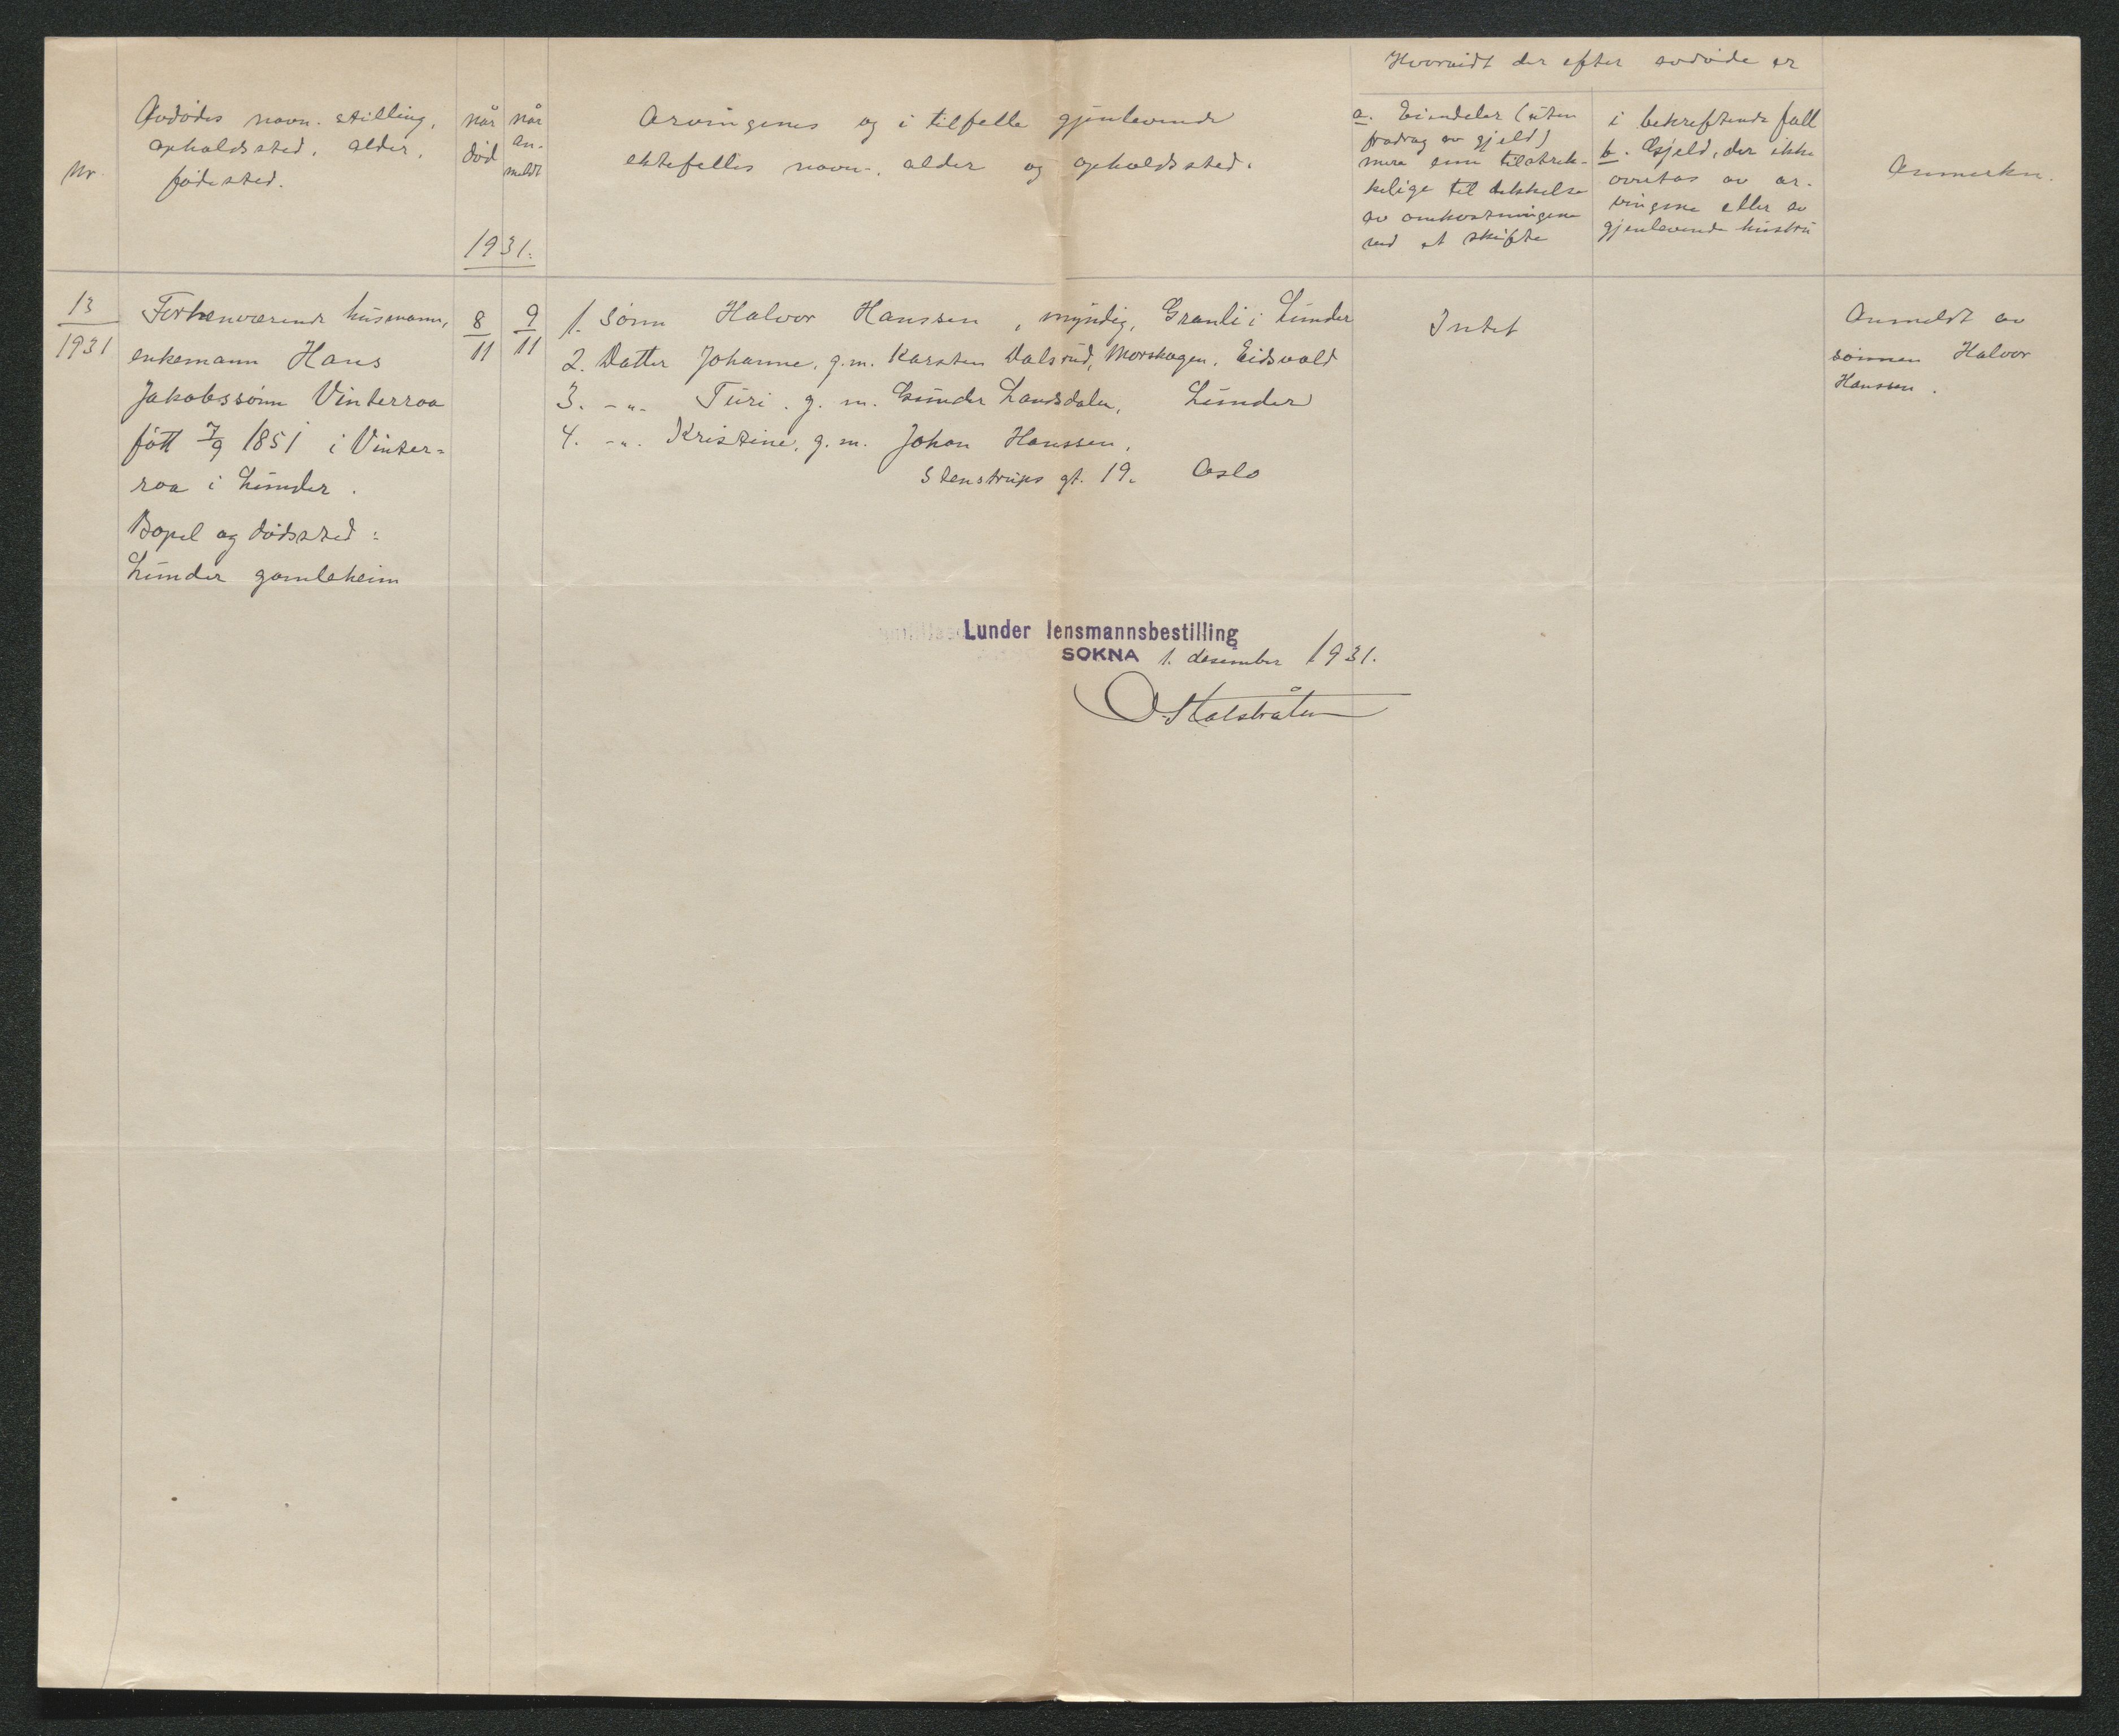 Hvorvidt der efter avdøde er
Nr.
Avdødes navn. stilling,
opholdssted, alder,
fødested.
når
død
når
an-
meldt
1931.
Arvingenes og i tilfelle gjenlevende
ektefelles navn-, alder og opholdssted.
a. Eiendeler (uten
fradrag av gjeld)
mere enn tilstrek-
kelige til dekkelse
av omkostningene
ved et skifte
i bekreftende fall
b. Gjeld, der ikke
overtas av ar-
vingene eller av
gjenlevende hustru
Anmerkn.
13
1931
Forhenværende husmann,
enkemann Hans
Jakobssønn Vinterroa
født 7/9 1851 i Vinter-
roa i Lunder.
Bopel og dødssted:
Lunder gamleheim
8
11
9
11
1. Sønn Halvor Hanssen, myndig, Granli i Lunder
2. Datter Johanne, g.m. Karsten Dalsrud, Morskogen, Eidsvold
3. -"- Turi. g. m. Gunder Landsdalen, Lunder
4. -"- Kristine, g.m. Johan Hanssen,
Stenstrups gt. 19. Oslo
Intet
Anmeldt av
sønnen Halvor
Hanssen.
Lunder lensmannsbestilling
SOKNA 1. desember 1931.